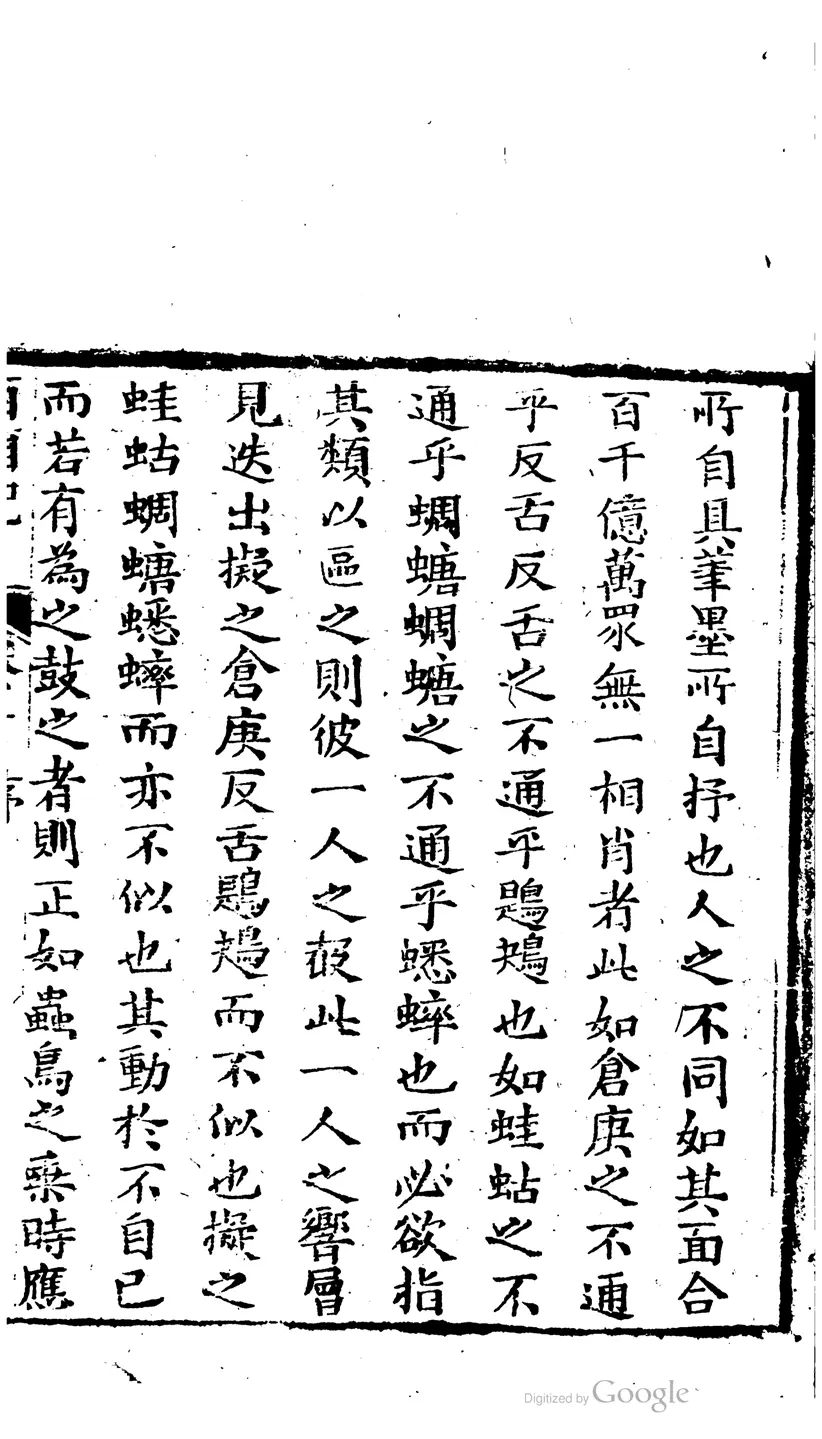 所自具筆墨所自抒也人之不同如其面合
百千億萬眾無一相肖者此如倉庚之不通
乎反舌反舌之不通乎鶗鴂也如蛙蛄之不
通乎蜩螗蜩螗之不通乎蟋蟀也而必欲指
其類以區之則彼一人之聲此一人之響層
見迭出擬之倉庚反舌鶗鴂而不似也擬之
蛙蛄蜩螗蟋蟀而亦不似也其動於不自已
而若有為之鼓之者則正如蟲鳥之乘時應
序
Digitized by Google